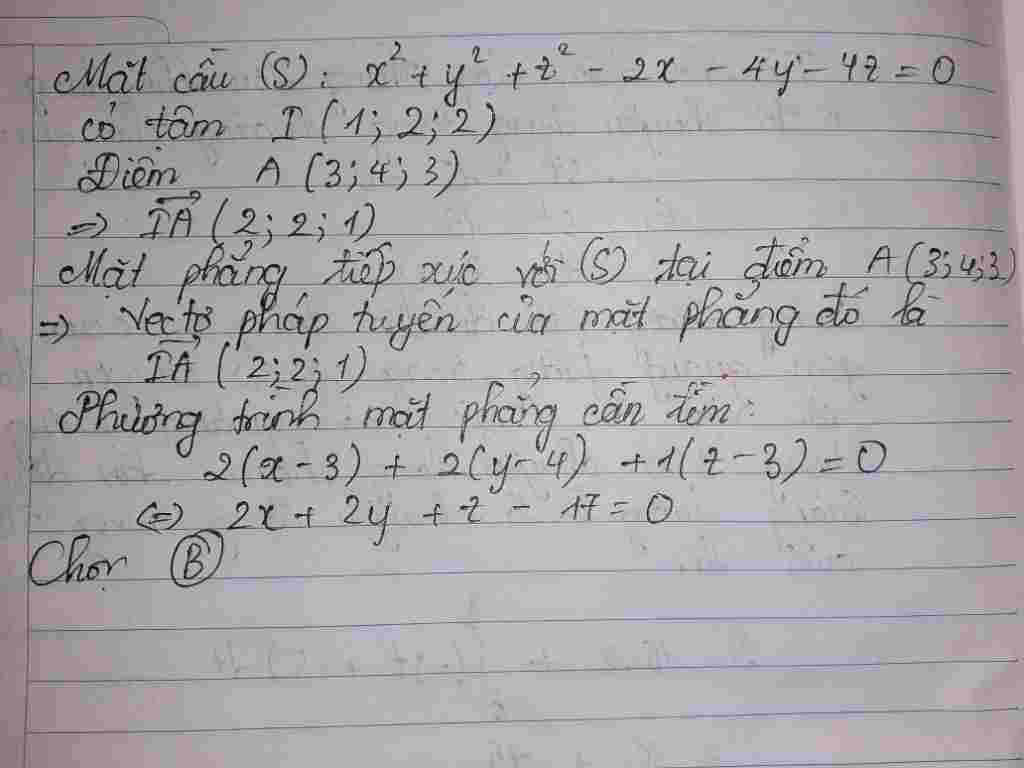 Mặt cầu (S): x² + y² + z² - 2x - 4y - 4z = 0
có tâm I (1; 2; 2)
Điểm A (3; 4; 3)
=> IA (2; 2; 1)
Mặt phẳng tiếp xúc với (S) tại điểm A (3; 4; 3)
=> Vectơ pháp tuyến của mặt phẳng đó là
IA (2; 2; 1)
Phương trình mặt phẳng cần tìm:
2(x - 3) + 2(y - 4) + 1(z - 3) = 0
(=) 2x + 2y + z - 17 = 0
Chọn B